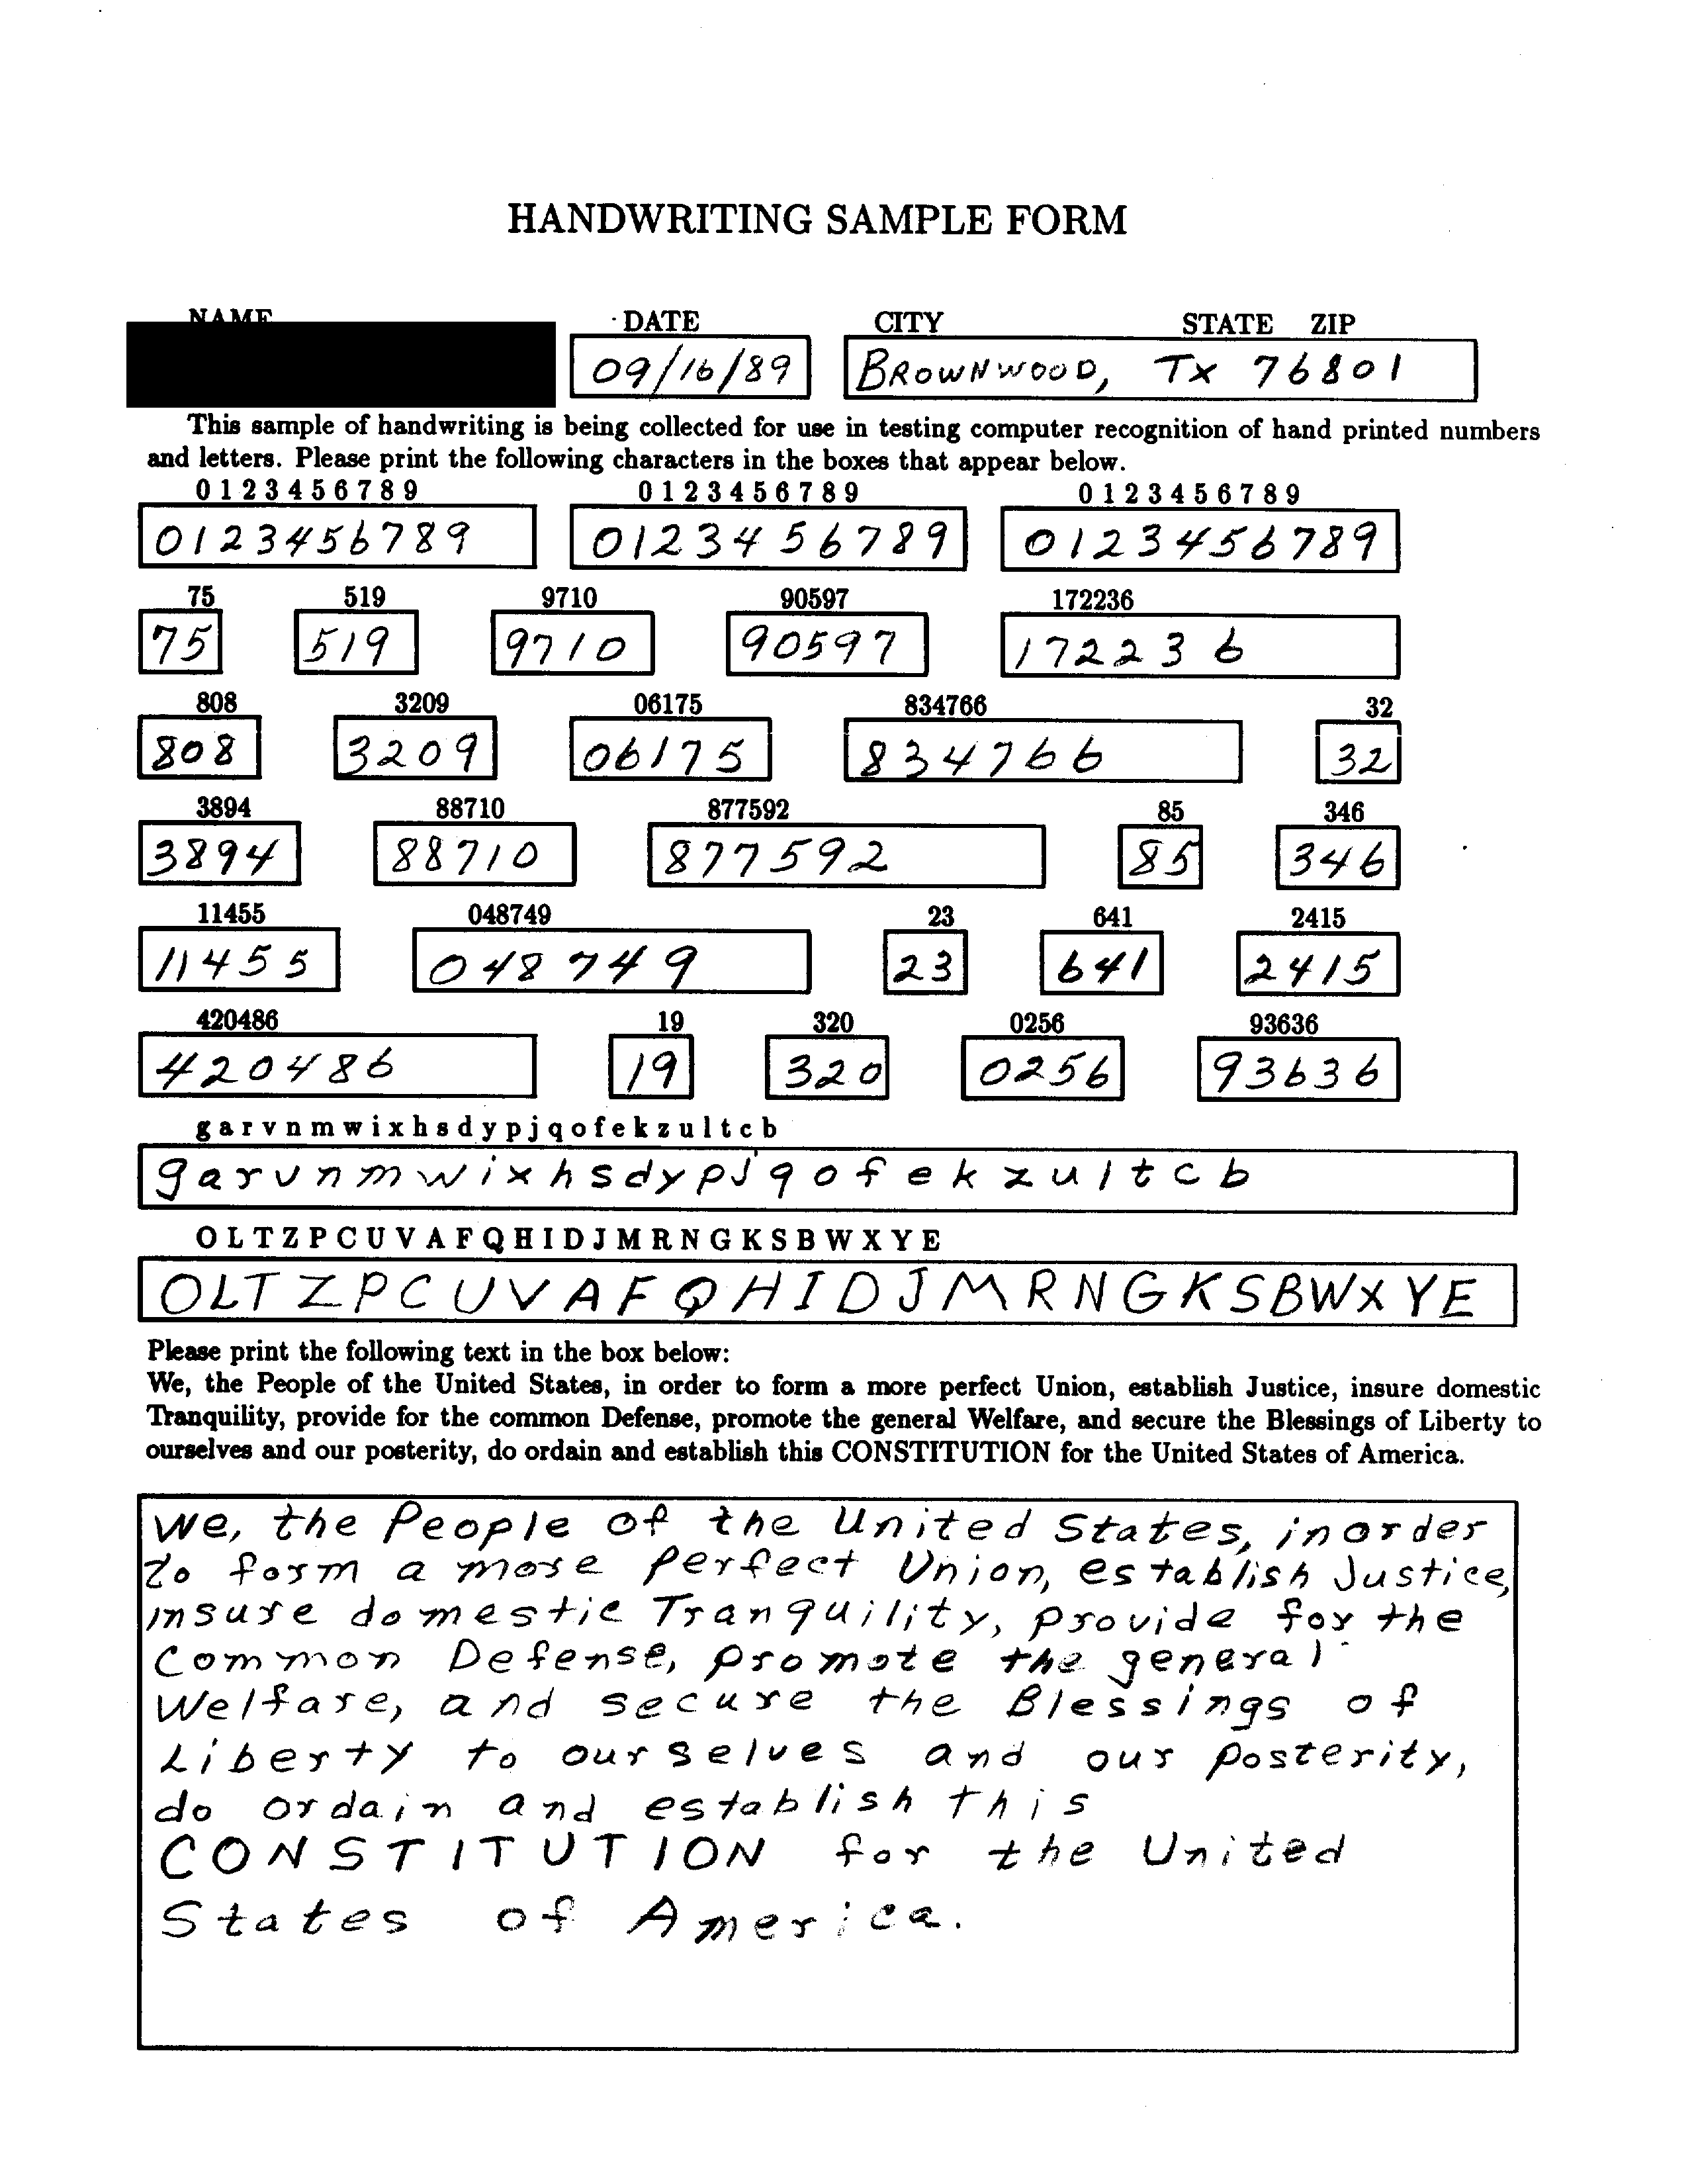 HANDWRITING SAMPLE FORM
NAME DATE CITY STATE ZIP
09/16/89 BROWNWOOD, TX 76801
This sample of handwriting is being collected for use in testing computer recognition of hand printed numbers
and letters. Please print the following characters in the boxes that appear below.
0 1 2 3 4 5 6 7 8 9 0 1 2 3 4 5 6 7 8 9 0 1 2 3 4 5 6 7 8 9
0123456789 0123456789 0123456789
75 519 9710 90597 172236
75 519 9710 90597 172236
808 3209 06175 834766 32
808 3209 06175 834766 32
3894 88710 877592 85 346
3894 88710 877592 85 346
11455 048749 23 641 2415
11455 048749 23 641 2415
420486 19 320 0256 93636
420486 19 320 0256 93636
g a r v n m w i x h s d y p j q o f e k z u l t c b
g a r v n m w i x h s d y p j q o f e k z u l t c b
O L T Z P C U V A F Q H I D J M R N G K S B W X Y E
O L T Z P C U V A F Q H I D J M R N G K S B W X Y E
Please print the following text in the box below:
We, the People of the United States, in order to form a more perfect Union, establish Justice, insure domestic
Tranquility, provide for the common Defense, promote the general Welfare, and secure the Blessings of Liberty to
ourselves and our posterity, do ordain and establish this CONSTITUTION for the United States of America.
We, the People of the United States, in order
to form a more perfect Union, establish Justice,
insure domestic Tranquility, provide for the
Common Defense, promote the general
Welfare, and secure the Blessings of
Liberty to ourselves and our posterity,
do ordain and establish this
CONSTITUTION for the United
States of America.